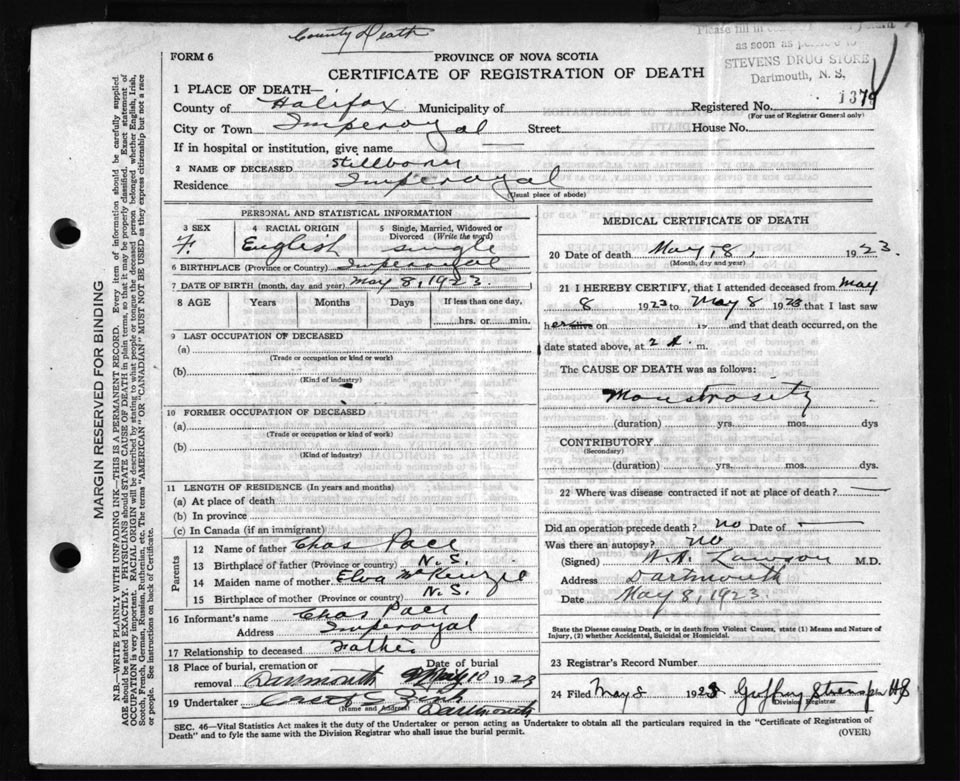 County Death
Please fill in
as soon as
STEVENS DRUG STORE
Dartmouth, N. S.
FORM 6
PROVINCE OF NOVA SCOTIA
CERTIFICATE OF REGISTRATION OF DEATH
1379
1 PLACE OF DEATH—
County of Halifax Municipality of
Registered No.
(For use of Registrar General only)
City or Town Imperoyal Street House No.
If in hospital or institution, give name —
2 NAME OF DECEASED Stillborn
Residence Imperoyal
(Usual place of abode)
MARGIN RESERVED FOR BINDING
N.B.—WRITE PLAINLY WITH UNFADING INK—THIS IS A PERMANENT RECORD. Every item of information should be carefully supplied.
AGE should be stated EXACTLY. PHYSICIANS should STATE CAUSE OF DEATH in plain terms, so that it may be properly classified. Exact statement of
OCCUPATION is very important. RACIAL ORIGIN will be described by stating to what people or tongue the deceased person belonged whether English, Irish,
Scotch, French, German, Russian, Ruthenian, etc. The terms "AMERICAN" OR "CANADIAN" MUST NOT BE USED as they express citizenship but not a race
or people. See instructions on back of Certificate.
PERSONAL AND STATISTICAL INFORMATION
3 SEX
F.
4 RACIAL ORIGIN
English
5 Single, Married, Widowed or
Divorced (Write the word)
single
6 BIRTHPLACE (Province or Country) Imperoyal
7 DATE OF BIRTH (month, day and year) May 8, 1923.
8 AGE Years Months Days If less than one day,
hrs. or min.
9 LAST OCCUPATION OF DECEASED
(a)
(Trade or occupation or kind or work)
(b)
(Kind of industry)
10 FORMER OCCUPATION OF DECEASED
(a)
(Trade or occupation or kind of work)
(b)
(Kind of industry)
11 LENGTH OF RESIDENCE (In years and months)
(a) At place of death
(b) In province
(c) In Canada (if an immigrant)
Parents
12 Name of father Chas Pace
13 Birthplace of father (Province or country) N.S.
14 Maiden name of mother Elva McKenzie
15 Birthplace of mother (Province or country) N.S.
16 Informant's name Chas Pace
Address Imperoyal
17 Relationship to deceased Father
18 Place of burial, cremation or
removal Dartmouth
Date of burial
May 10 1923
19 Undertaker
(Name and Address)
Dartmouth
MEDICAL CERTIFICATE OF DEATH
20 Date of death May, 8, 1923
(Month, day and year)
21 I HEREBY CERTIFY, that I attended deceased from May
8 1923 to May 8 1923 that I last saw
her alive on 19 and that death occurred, on the
date stated above, at 2 A. m.
The CAUSE OF DEATH was as follows:
Monstrosity
(duration) yrs. mos. dys
CONTRIBUTORY
(Secondary)
(duration) yrs. mos. dys.
22 Where was disease contracted if not at place of death? —
Did an operation precede death? no Date of —
Was there an autopsy? no
(Signed) Lawson M.D.
Address Dartmouth
Date May 8, 1923.
State the Disease causing Death, or in death from Violent Causes, state (1) Means and Nature of
Injury, (2) whether Accidental, Suicidal or Homicidal.
23 Registrar's Record Number
24 Filed May 8 1923
Division Registrar
SEC. 46—Vital Statistics Act makes it the duty of the Undertaker or person acting as Undertaker to obtain all the particulars required in the "Certificate of Registration of
Death" and to fyle the same with the Division Registrar who shall issue the burial permit.
(OVER)